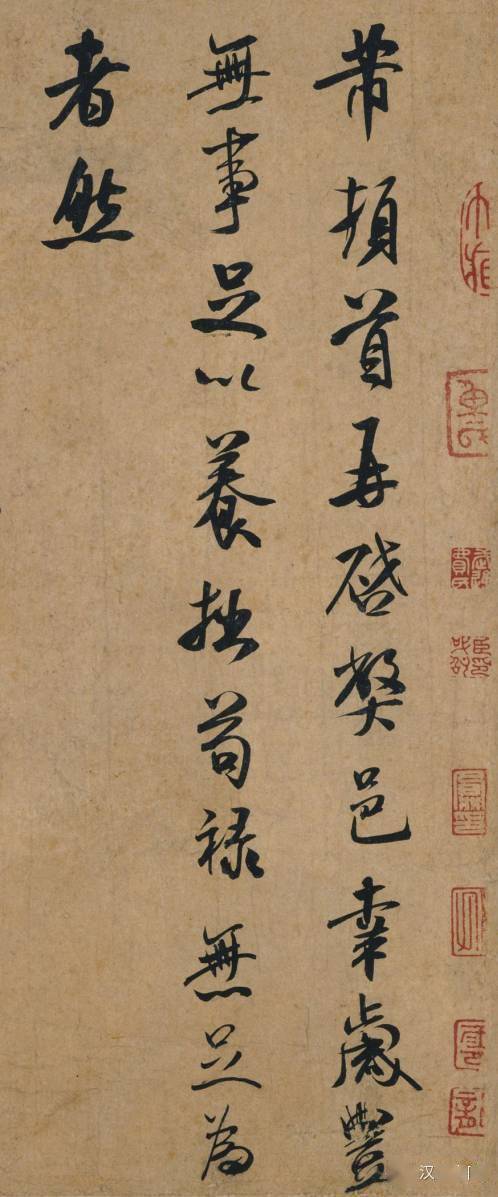 芾頓首再啓弊邑幸歲豐
無事足以養拙苟祿無足為
者然